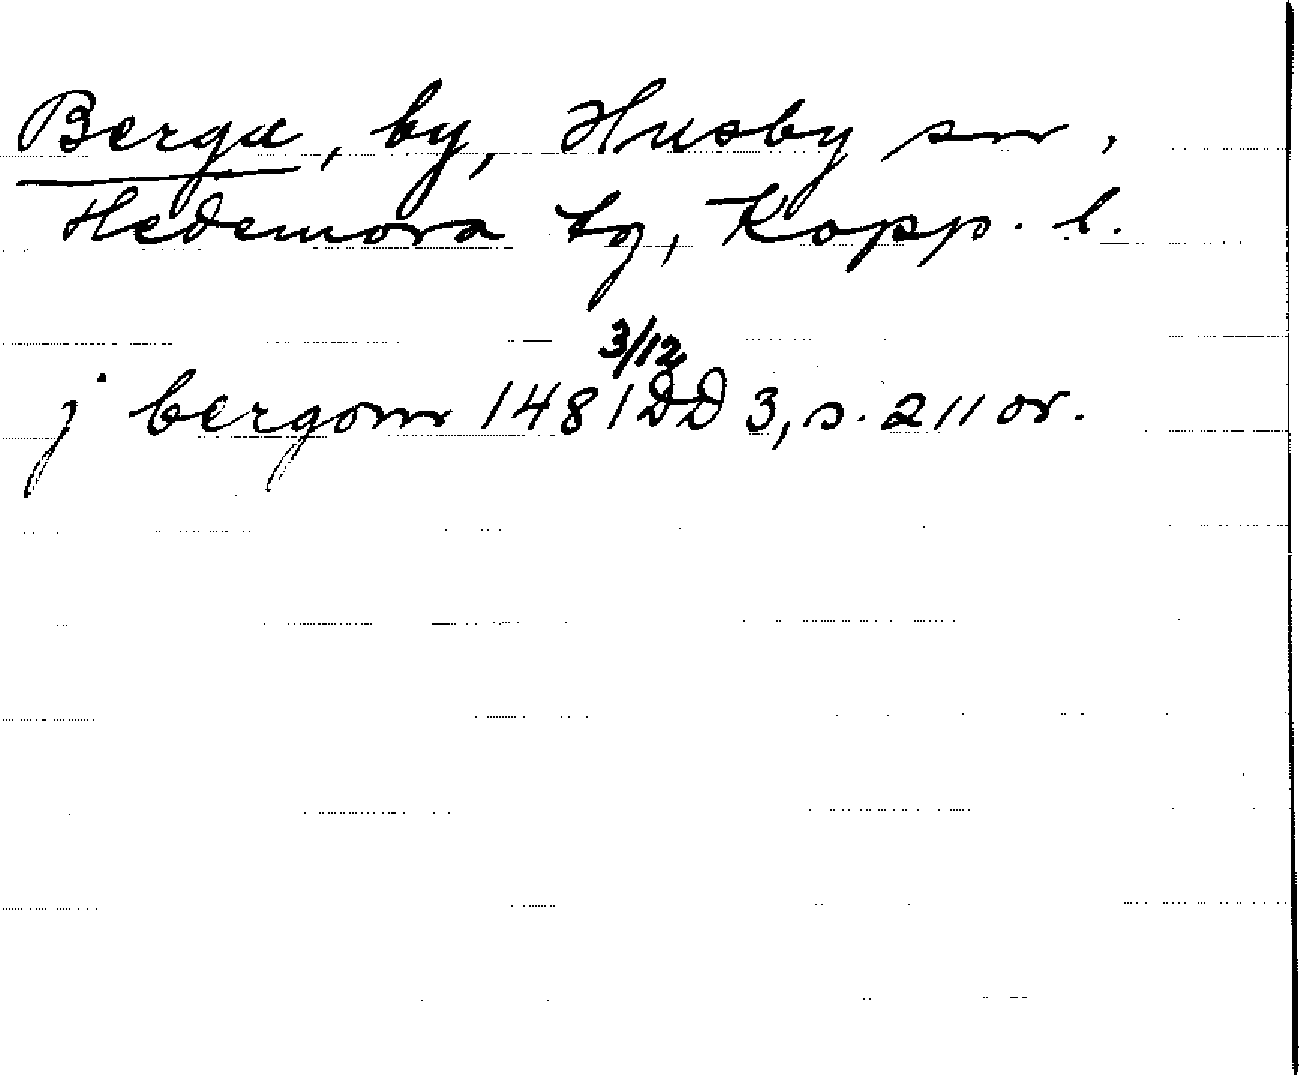 Berga, by, Husby sn.
Hedemora tg, Kopp. l.
j bergom 1481 3/12 DD 3, s. 211 or.